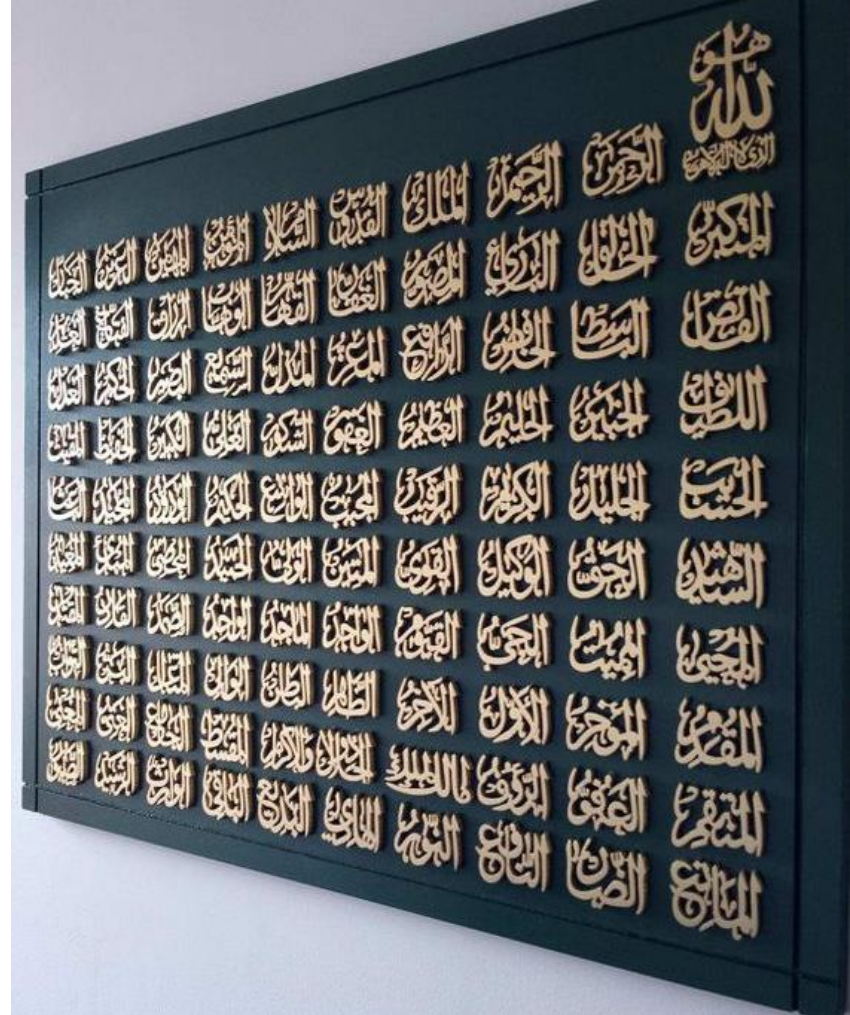 هو
الله
الذي لا إله إلا هو
الرَّحمن الرَّحيم الملك القدوس السلام المؤمن المهيمن العزيز الجبار
المتكبر الخالق البارئ المصور الغفار القهار الوهاب الرزاق الفتاح العليم
القابض الباسط الخافض الرافع المعز المذل السميع البصير الحكم العدل
اللطيف الخبير الحليم العظيم الغفور الشكور العلي الكبير الحفيظ المقيت
الحسيب الجليل الكريم الرقيب المجيب الواسع الحكيم الودود المجيد الباعث
الشهيد الحق الوكيل القوي المتين الولي الحميد المحصي المبدئ المعيد
المحيي المميت الحي القيوم الواجد الماجد الواحد الصمد القادر المقتدر
المقدم المؤخر الأول الآخر الظاهر الباطن الوالي المتعال البر التواب
المنتقم العفو الرؤوف مالك الملك ذو الجلال والإكرام المقسط الجامع الغني المغني
المانع الضار النافع النور الهادي البديع الباقي الوارث الرشيد الصبور